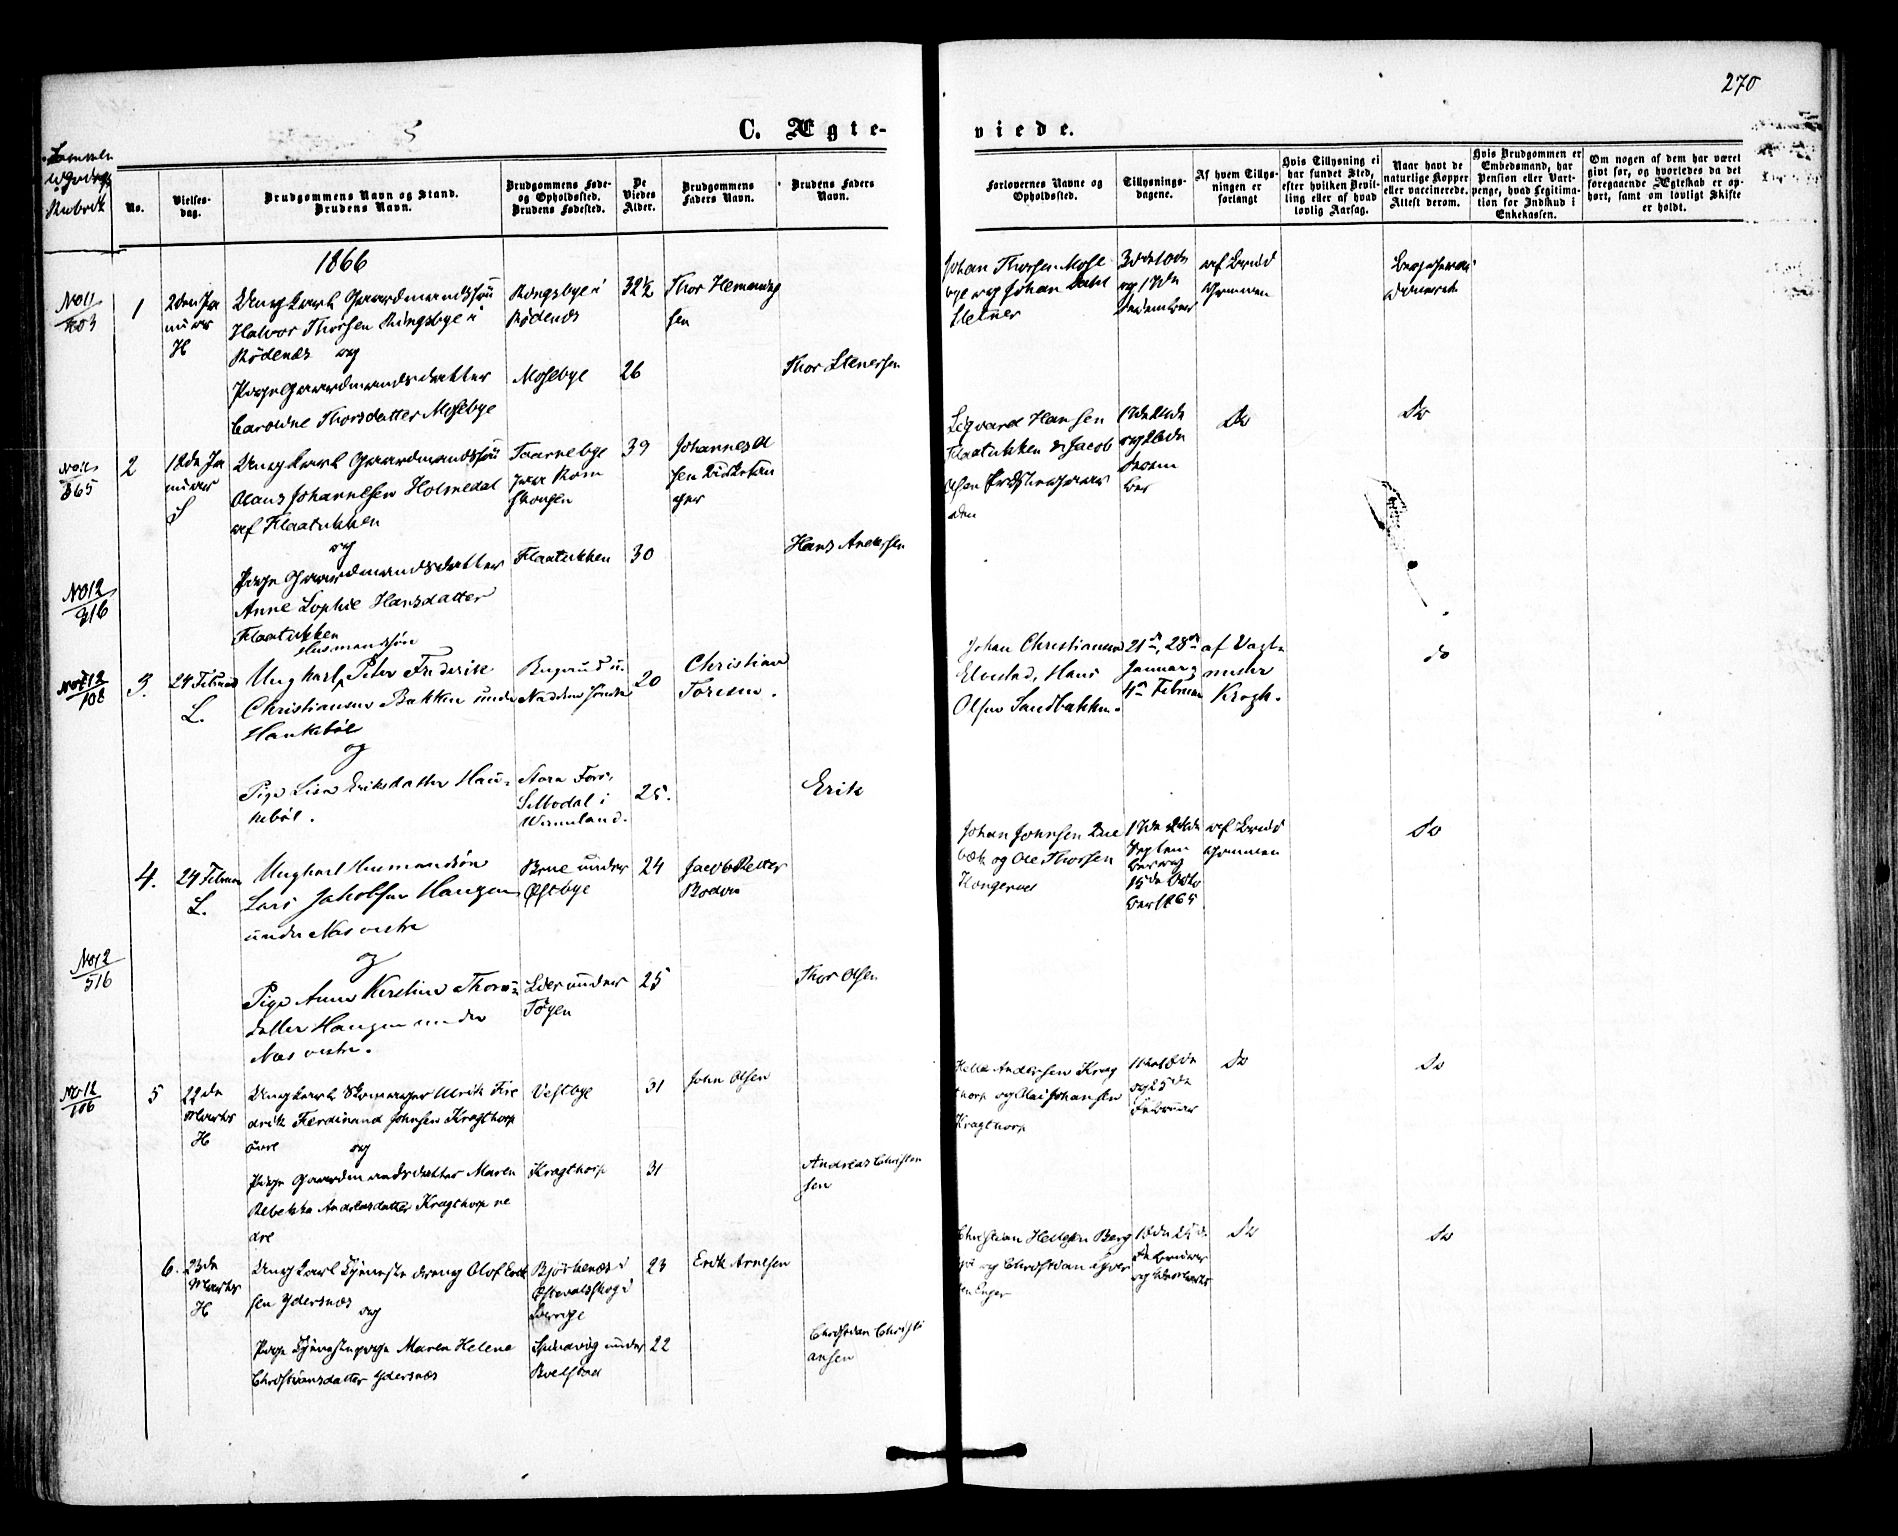 270
C. Ægte-
viede.
No.
Vielses-
dag.
Brudgommens Navn og Stand.
Brudens Navn.
Brudgommens Føde-
og Opholdssted.
Brudens Fødested.
De
Viedes
Alder.
Brudgommens
Faders Navn.
Brudens Faders
Navn.
Forlovernes Navne og
Opholdssted.
Tillysnings-
dagene.
Af hvem Tillys-
ningen er
forlangt
Hvis Tillysning ei
har fundet Sted,
efter hvilken Bevil-
ling eller af hvad
lovlig Aarsag.
Naar havt de
naturlige Kopper
eller vaccinerede.
Attest derom.
Hvis Brudgommen er
Embedsmand, har
Pension eller Vart-
penge, hvad Legitima-
tion for Indskud i
Enkekassen.
Om nogen af dem har været
gift før, og hvorledes da det
foregaaende Ægteskab er op-
hørt, samt om lovligt Skifte
er holdt.
1866
1
2den Ja
nuar
H
Ungkarl Gaardmandssøn
Halvor Thorsen Ringsbye i
Rødenæs og
Ringsbye i
Rødenæs
32½
Thor Hemmings
sen
Johan Thorsen Mose
bye og Johan
3die 10de
og 17de
Desember
af Brud
gommen
Begge
Pige Gaardmandsdatter
Caroline Thorsdatter Mosebye
Mosebye
26
Thor Stenersen
2
12de Ja
nuar
S
Ungkarl Gaardmandssøn
Olaus Johannesen Holmedal
af Flaatukken
og
Taarnebye
paa Rom
skougen
39
Johannes Ol
sen
Sigvard Hansen
Flaatukken & Jacob
Olsen
17de 24de
Do
Do
Pige Gaardmandsdatter
Anne Sophie Hansdatter
Flaatukken
Flaatukken
30
Hans Andersen
3.
24 Februar
L.
Husmandssøn
Ungkarl Peter Frederik
Christiansen Bakken under
Haukebøl
og
20
Christian
Toresen.
Johan Christiansen
Elvestad, Hans
Olsen Sandbakken.
21de, 28de
Januar &
4de Februar
af Vagt-
mester
Krogh.
do
Pige Lisa Eriksdatter Hau-
kebøl.
Stora Fors,
Silbodal i
Wermland.
25.
Erik
4.
24 Februar
L.
Ungkarl Husmandssøn
Lars Jakobsen Haugen
under Næs vestre
og
Brue under
Østbye
24
Jacob Petter
Boden
Johan Johnsen Brue
bæk og Ole Thorsen
17de 24de
Septem
ber og
15de Octo
ber 1865
af Brud
gommen
Do
Pige Anne Kerstine Thors-
datter Haugen under
Næs vestre.
Lier under
Tøyen
25
Thor Olsen
5
22de
Marts
H
Ungkarl Skomager Ulrik Fre
drik Ferdinand Johnsen Kragthorp
øvre og
Vestbye
31
John Olsen
Helle Andersen Krag
thorp og Mai Johansen
Kragthorp
11te 18de
og 25de
Februar
Do
Do
Pige Gaardmandsdatter Maren
Rebekka Andreasdatter Kragthorp ne
dre
Kragthorp
31
Andreas Christen
sen
6.
23de
Marts
H
Ungkarl Tjenestedreng Olof Erik
sen Ydersnæs
og
Bjørkenæs i
Østevalskog i
Sverrige
23
Erik Arnesen
Christian Helgesen Berg
og Christian Iver
sen Enger
18de 25de
Februar
og 4de Marts
Do
Do
Pige Tjenestepige Maren Helene
Christiansdatter Ydersnæs
Sundvig under
Bøelstad
22
Christian Christi
ansen